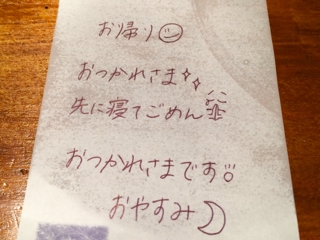 お帰り☺
おつかれさま✨
先に寝てごめん
おつかれさまです
おやすみ☽